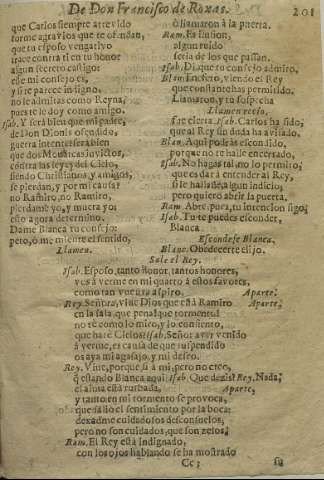 De Don Francisco de Roxas. 201
que Carlos siempre atrevido
forme agravios que te ofendan,
que tu esposo vengativo
trace contra ti en tu honor
algun secreto castigo:
este mi consejo es,
y si te parece indigno,
no le admitas como Reyna,
pues te le doy como amigo.
Isab. Y será bien que mi padre,
de Don Dionis ofendido,
guerra intente; será bien
que dos Monarcas invictos,
contra las leyes del Cielo,
siendo Christianos, y amigos,
se pierdan, y por mi causa?
no Ramiro, no Ramiro,
pierdame yo, y muera yo:
esto agora determino.
Dame Blanca tu consejo:
pero, ò me miente el sentido,
Llamen.
ò llamaron à la puerta.
Ram. Es ilusion,
algun ruido
seria de los que passan.
Isab. Di, que tu consejo admito.
Blan. Enefeto, viendo el Rey
que constante has permitido.
Llamaron, y tu sospecha
Llamen recio.
fue cierta. Isab. Carlos ha sido;
que al Rey sin duda ha avisado.
Blan. Aqui podràs escondido,
porque no te halle encerrado.
Isab. No hagas tal, no lo permito;
que es dar à entender al Rey,
si le halla en algun indicio,
pero quiero abrir la puerta.
Ram. Abre, pues, tu intencion sigo;
Isab. Tu te puedes esconder,
Blanca.
Escondese Blanca.
Blanc. Obedecerte elijo.
Sale el Rey.
Isab. Esposo, tanto honor, tantos honores,
ves à verme en mi quarto à estos favores,
como tan ventura aspiro. Aparte.
Rey. Señora, vive Dios que està Ramiro Aparte,
en la sala, que pena! que tormento!
no se como lo miro, y lo consiento,
que harè Cielos? Isab. Señor aver venido
à verme, es causa de que suspendido
os aya mi agasajo, y mi deseo.
Rey. Vive, porque si à mi hõra no creo,
q̃ estando Blanca aqui. Isab. Que dezis? Rey. Nada;
el alma està turbada, Aparte,
y tanto en mi tormento se provoca,
que salio el sentimiento por la boca:
dexadme cuidados desconsuelos,
pero no son cuidados, que son zelos;
Ram. El Rey està indignado,
con los ojos hablando se ha mostrado
Cc 3 su